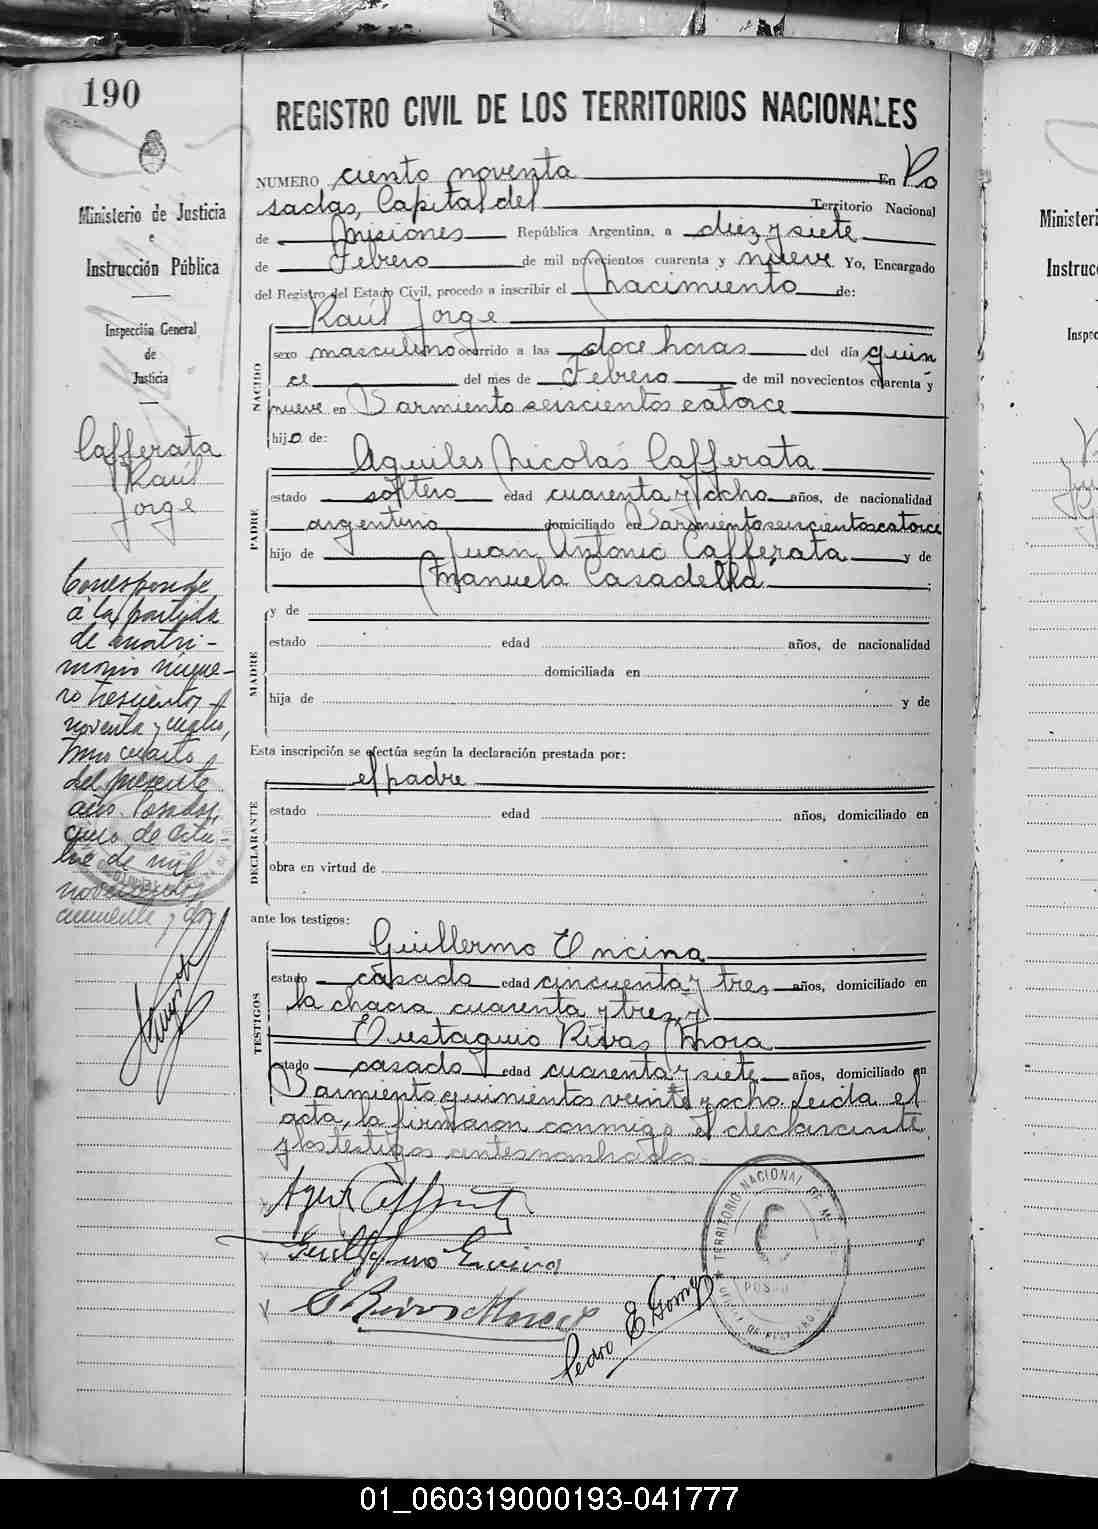 190
REGISTRO CIVIL DE LOS TERRITORIOS NACIONALES
NUMERO ciento noventa En Po
sadas, Capital del Territorio Nacional
de Misiones República Argentina, a diez y siete
de Febrero de mil novecientos cuarenta y nueve Yo, Encargado
del Registro del Estado Civil, procedo a inscribir el Nacimiento de:
Raúl Jorge
NACIDO
sexo masculino ocurrido a las doce horas del día quin
ce del mes de Febrero de mil novecientos cuarenta y
nueve en Sarmiento seiscientos catorce
hijo de:
Aquiles Nicolás Cafferata
PADRE
estado soltero edad cuarenta y ocho años, de nacionalidad
argentina domiciliado en Sarmiento seiscientos catorce
hijo de Juan Antonio Cafferata y de
Manuela Casadella;
y de
MADRE
estado edad años, de nacionalidad
domiciliada en
hija de y de
Esta inscripción se efectúa según la declaración prestada por:
el padre
DECLARANTE
estado edad años, domiciliado en
obra en virtud de
ante los testigos:
Guillermo Encina
TESTIGOS
estado casado edad cincuenta y tres años, domiciliado en
la chacra cuarenta y tres, y
Eustaquio Rivas Mora
estado casado edad cuarenta y siete años, domiciliado en
Sarmiento quinientos veinte y ocho. Leída el
acta, la firmaron conmigo el declarante
y los testigos antes nombrados.
Guillermo Encina
E Rivas Mora
Pedro E. Gómez
TERRITORIO NACIONAL DE
Ministerio de Justicia
e
Instrucción Pública
Inspección General
de
Justicia
Cafferata
Raúl
Jorge
Corresponde
a la partida
de matri-
monio núme-
ro trescientos
noventa y cuatro,
tomo cuarto
del presente
año. Posadas,
de Octu-
bre de mil
novecientos
cincuenta y dos
Ministeri
Instruc
Inspec
01_060319000193-041777